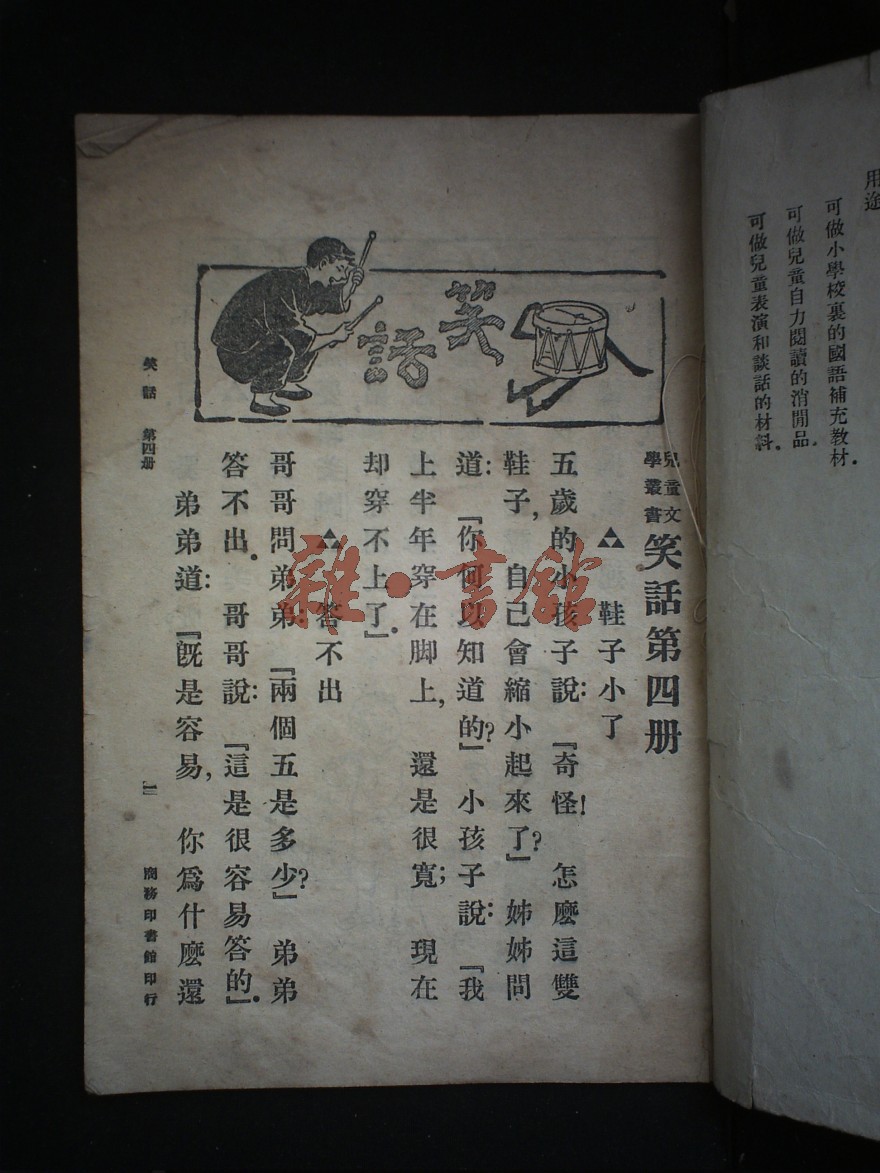 用途
可做小學校裏的國語補充教材.
可做兒童自力閱讀的消閒品.
可做兒童表演和談話的材料.
笑話
兒童文學叢書 笑話第四册
鞋子小了
五歲的小孩子說:『奇怪! 怎麽這雙
鞋子, 自己會縮小起來了?』姊姊問
道:『你何以知道的?』小孩子說:『我
上半年穿在脚上, 還是很寬; 現在
却穿不上了.』
答不出
哥哥問弟弟:『兩個五是多少?』弟弟
答不出. 哥哥說:『這是很容易答的.』
弟弟道:『旣是容易, 你爲什麽還
笑話 第四册
一
商務印書館印行
雜·書館